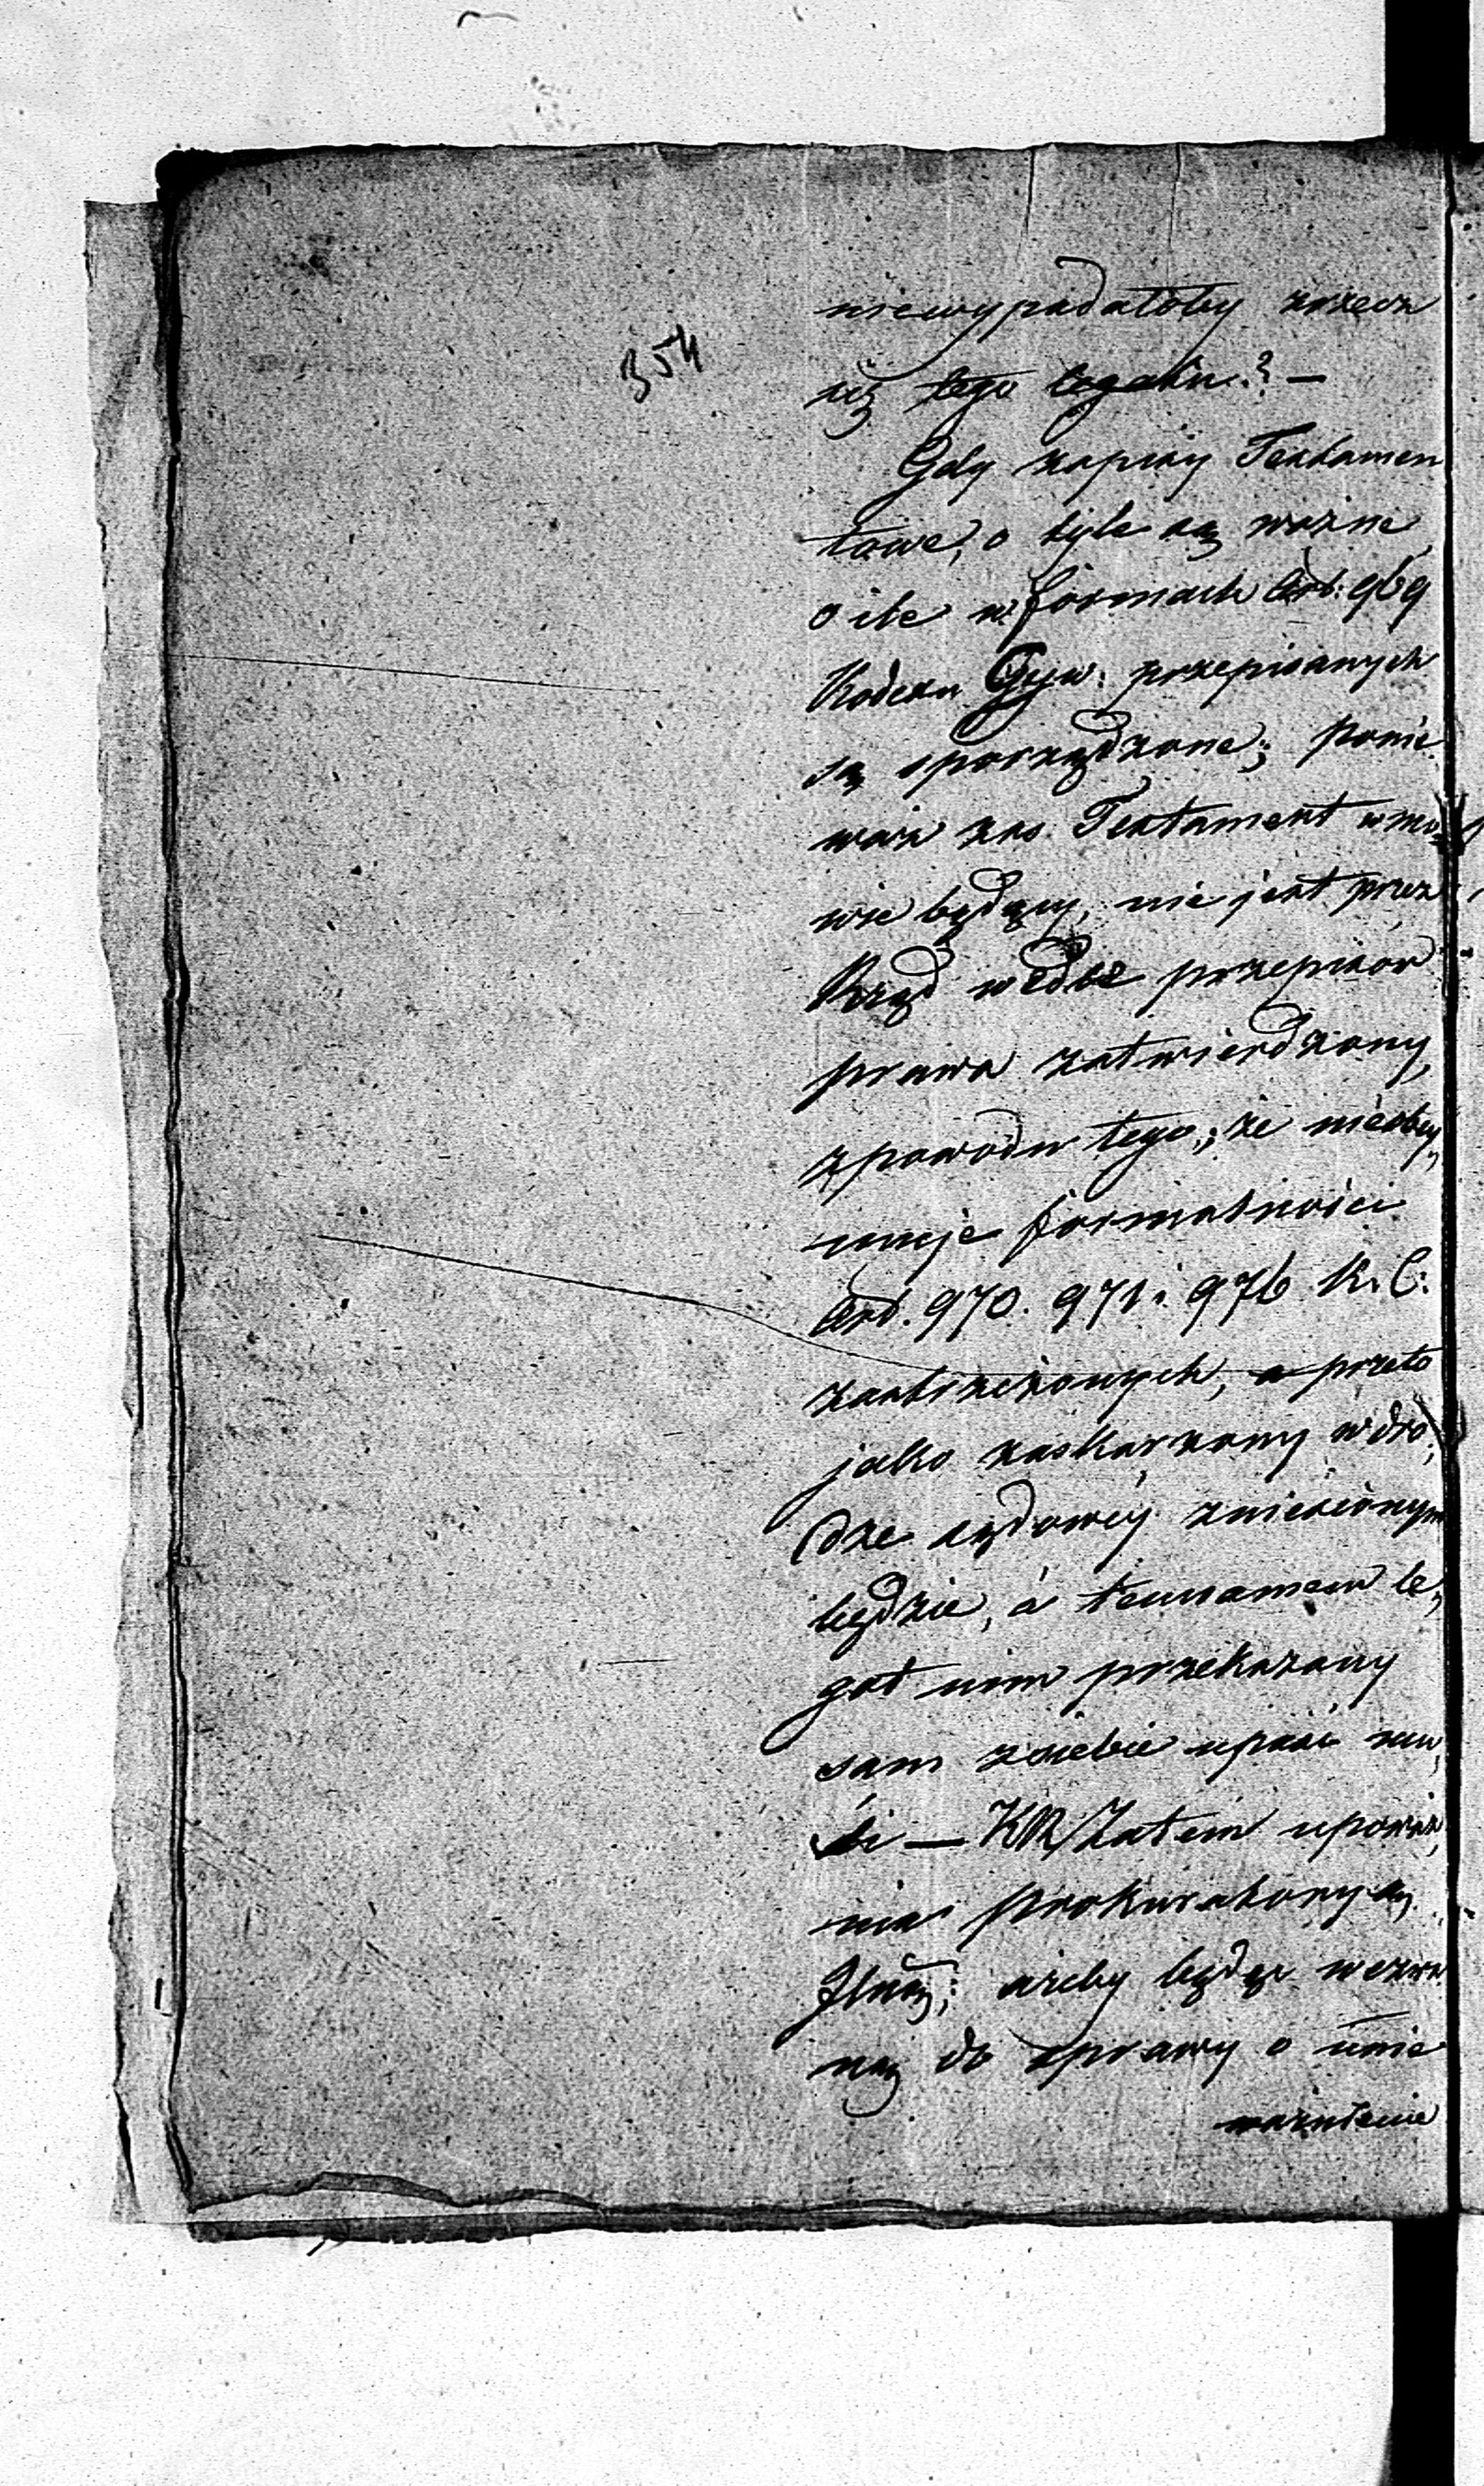 354
niewypadałoby zrzecz
się tego legatu? —
Gdy zapisy Testamen
towe, o tyle są ważne
o ile w formach Art: 969
Kodexu Cyw: przepisanych
są sporządzone; ponie
waż zas Testament w mo
wie będący, nie jest przez
Rząd wedle przepisów
prawa zatwierdzony,
z powodu tego; że nieoby
muje formalności
Art. 970. 971. i 976 K. C:
zastrzeżonych, a przeto
jako zaskarzony w dro
dze sądowey zniesionym
będzie, á temsamem le
gat nim przekazany
sam zsiebie upaść mu
si — KR Zatem upoważ
nia prokuratoryą
; ażeby będąc wezwa
ną do sprawy o unie
ważnienie